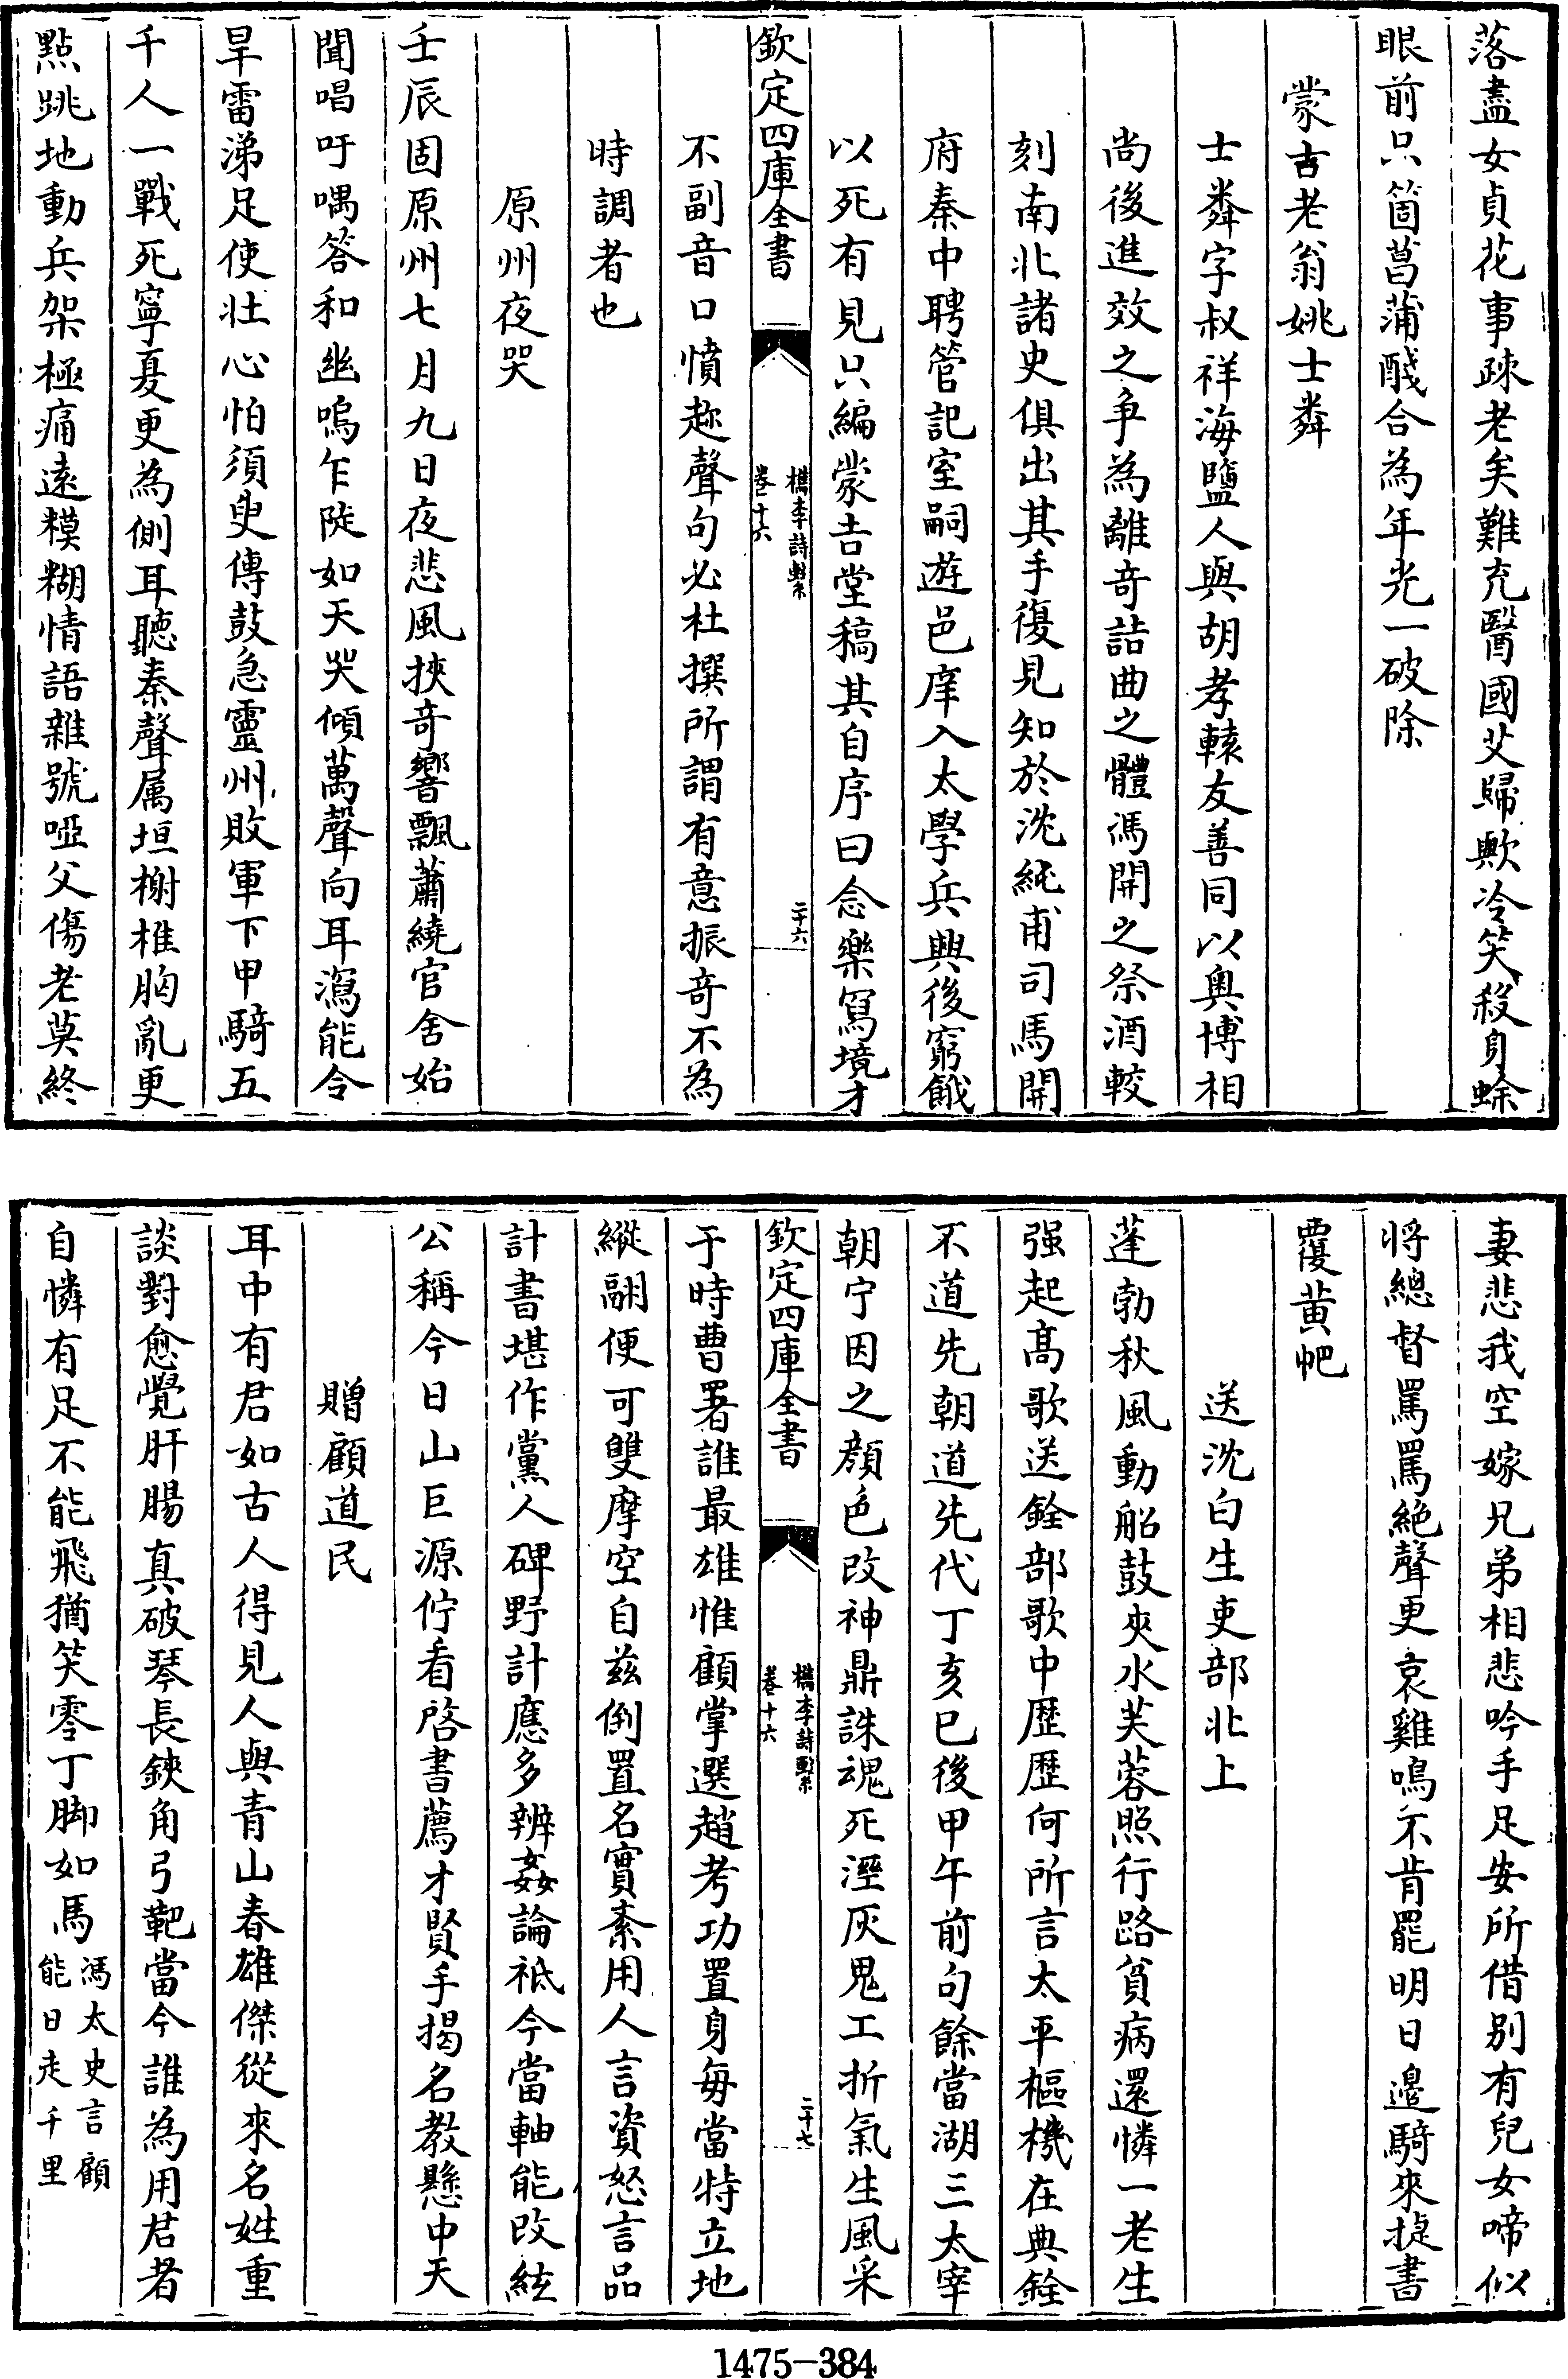 落盡女貞花事疎老矣難充醫國艾歸歟冷笑殺身蜍
眼前只箇菖蒲醆合為年光一破除
蒙古老翁姚士粦
士粦字叔祥海鹽人與胡孝轅友善同以奥博相
尚後進效之爭為離奇詰曲之體馮開之祭酒較
刻南北諸史俱出其手復見知於沈純甫司馬開
府秦中聘管記室嗣遊邑庠入太學兵興後窮餓
以死有見只編蒙吉堂稿其自序曰念樂寫境才
欽定四庫全書
檇李詩繫
卷十六
二十六
不副音口憤趂聲句必杜撰所謂有意振奇不為
時調者也
原州夜哭
壬辰固原州七月九日夜悲風挾奇響飄蕭繞官舍始
聞唱吁喁答和幽嗚乍陡如天哭傾萬聲向耳瀉能令
旱雷涕足使壯心怕須臾傳鼓急靈州敗軍下甲騎五
千人一戰死寧夏更為側耳聽秦聲属垣榭椎胸亂更
點跳地動兵架極痛遠糢糊情語雜號啞父傷老莫終
妻悲我空嫁兄弟相悲吟手足安所借别有兒女啼似
将總督罵罵絶聲更哀雞鳴不肯罷明日邉騎來捉書
覆黄帊
送沈白生吏部北上
蓬勃秋風動船鼓夾水芙蓉照行路貧病還憐一老生
强起髙歌送銓部歌中歴歴何所言太平樞機在典銓
不道先朝道先代丁亥已後甲午前句餘當湖三太宰
朝宁因之顔色改神鼎誅魂死溼灰鬼工折氣生風采
欽定四庫全書
檇李詩繫
卷十六
二十七
于時曹署誰最雄惟顧掌選趙考功置身每當特立地
縱翮便可雙摩空自兹倒置名實紊用人言資怒言品
計書堪作黨人碑野計應多辨姦論祗今當軸能改絃
公稱今日山巨源佇看啓書薦才賢手揭名教懸中天
贈顧道民
耳中有君如古人得見人與青山春雄傑從來名姓重
談對愈覺肝腸真破琴長鋏角弓靶當今誰為用君者
自憐有足不能飛猶笑零丁脚如馬馮太史言顧
能日走千里
1475-384